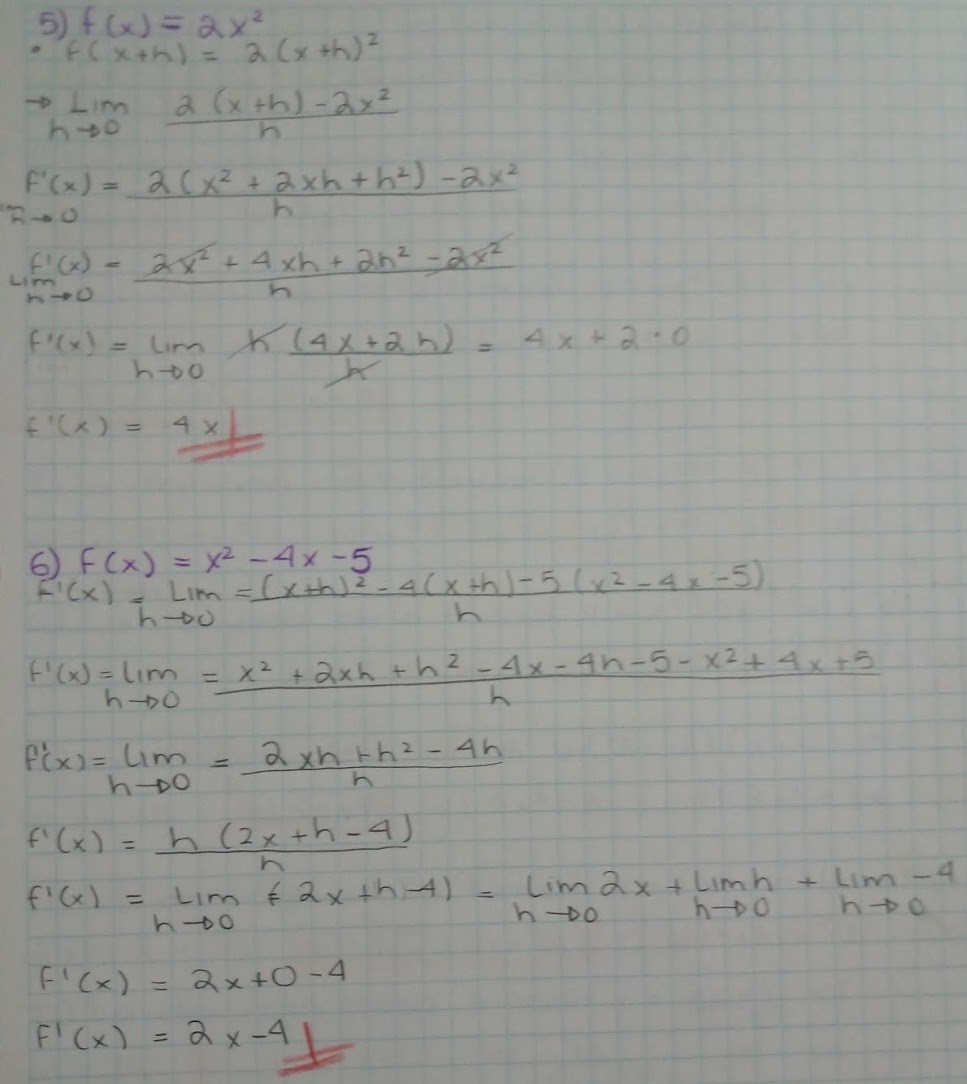 5) f(x) = 2x²
• f(x+h) = 2(x+h)²
→ Lim h→0 2(x+h)-2x² / h
f'(x) = 2(x² + 2xh + h²) - 2x² / h
h→0
f'(x) = 2x² + 4xh + 2h² - 2x² / h
Lim h→0
f'(x) = Lim h→0 h(4x+2h) / h = 4x + 2·0
f'(x) = 4x
6) f(x) = x² - 4x - 5
f'(x) = Lim h→0 = (x+h)² - 4(x+h) - 5(x² - 4x - 5) / h
f'(x) = Lim h→0 = x² + 2xh + h² - 4x - 4h - 5 - x² + 4x + 5 / h
f'(x) = Lim h→0 = 2xh + h² - 4h / h
f'(x) = h(2x + h - 4) / h
f'(x) = Lim h→0 (2x + h - 4) = Lim h→0 2x + Lim h→0 h + Lim h→0 -4
f'(x) = 2x + 0 - 4
f'(x) = 2x - 4